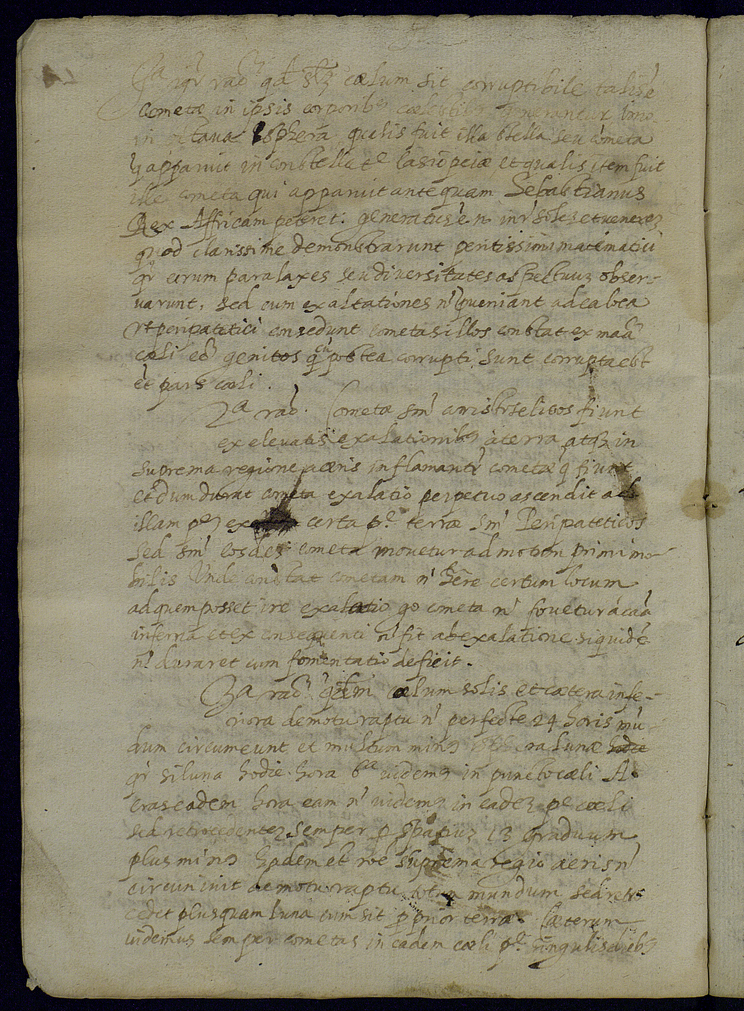 1ª igr̃ raõ qd̃ cælum sit corruptibile talis ẽ
cometæ in ipsis corporibꝫ cœlestibꝫ generantur imo
in octaua sphera qualis fuit illa stella seu cometa
q̃ apparuit in constellatẽ Casiopeiæ et qualis item fuit
ille cometa qui apparuit antequam Sebastianus
Rex Affricam peteret. generatus ẽ n. intr̃ soles et veneres
quod clarissime demonstrarunt peritissimi matematici
qr̃ earum paralaxes seu diuersitates aspectuuꝫ obser-
uarunt, sed cum exaltationes nõ queniant ad ea loca
vt peripatetici consedunt cometas illos constat ex maã
cœli eẽ genitos q̃ cũ postea corrupti sunt corrupta est
et pars cœli.
2ª raõ. Cometæ sm̃ aristotelicos fiunt
ex eleuatis exalationibꝫ à terra atqꝫ in
suprema regione aëris inflamantr̃ cometæ q̃ fiunt
et dum durat cometa exalatio perpetuo ascendit ad
illam pẽ ex certa pẽ terræ sm̃ Peripateticos
sed sm̃ eosdeꝫ cometa mouetur ad motũ primi mo-
bilis Vnde constat cometam nõ hẽre certum locum
ad quem posset ire exalatio go cometa nõ fouetur à caã
inferna et ex consequenti nõ fit ab exalatione siquidẽ
nõ duraret cum fomentatio deficit.
3ª raõ. cælum solis et cætera infe-
riora de motu raptu nõ perfecte 24 horis mũ-
dum circumeunt et multum minꝰ luna
qr̃ si luna hodie hora 6ª uidemꝰ in puncto cœli A.
cras eadem hora eam nõ uidemꝰ in eadeꝫ pẽ cœli
sed retrocedenteꝫ semper p̃ spatiuꝫ 13 graduum
plus minꝰ Eadem et roẽ suprema regio aëris nõ
circuiuit de motu raptu totum mundum sed retro-
cedet plusquam luna cum sit p̃prior terræ. Cæterum
uidemus semper cometas in eadem cœli pẽ singulis diebꝫ